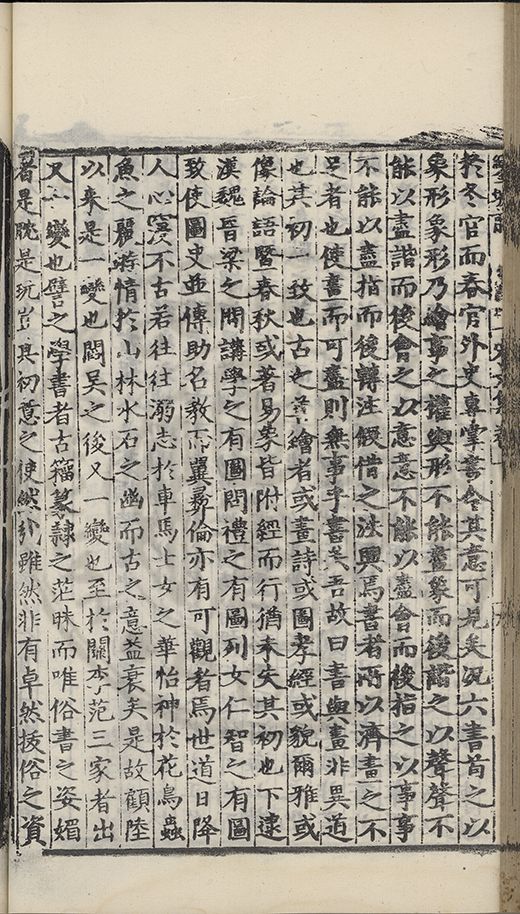 於冬官而春官外史專掌書令其意可見矣況六書首之以
象形象形乃繪事之權輿形不能盡象而後諧之以聲聲不
能以盡諧而後會之以意意不能以盡會而後指之以事事
不能以盡指而後轉注假借之法興焉書者所以濟畫之不
足者也使畫而可盡則無事乎書矣吾故曰書與畫非異道
也其初一致也古之善繪者或畫詩或圖孝經或貌爾雅或
像論語暨春秋或著易象皆附經而行猶未失其初也下逮
漢魏晉梁之間講學之有圖問禮之有圖列女仁智之有圖
致使圖史並傳助名教而翼彞倫亦有可觀者焉世道日降
人心寖不古若往往溺志於車馬士女之華怡神於花鳥蟲
魚之麗游情於山林水石之幽而古之意益衰矣是故顧陸
以來是一變也閻吳之後又一變也至於關李范三家者出
又一變也譬之學書者古籀篆隸之茫昧而唯俗書之姿媚
者是眈是玩豈其初意之使然哉雖然非有卓然拔俗之資